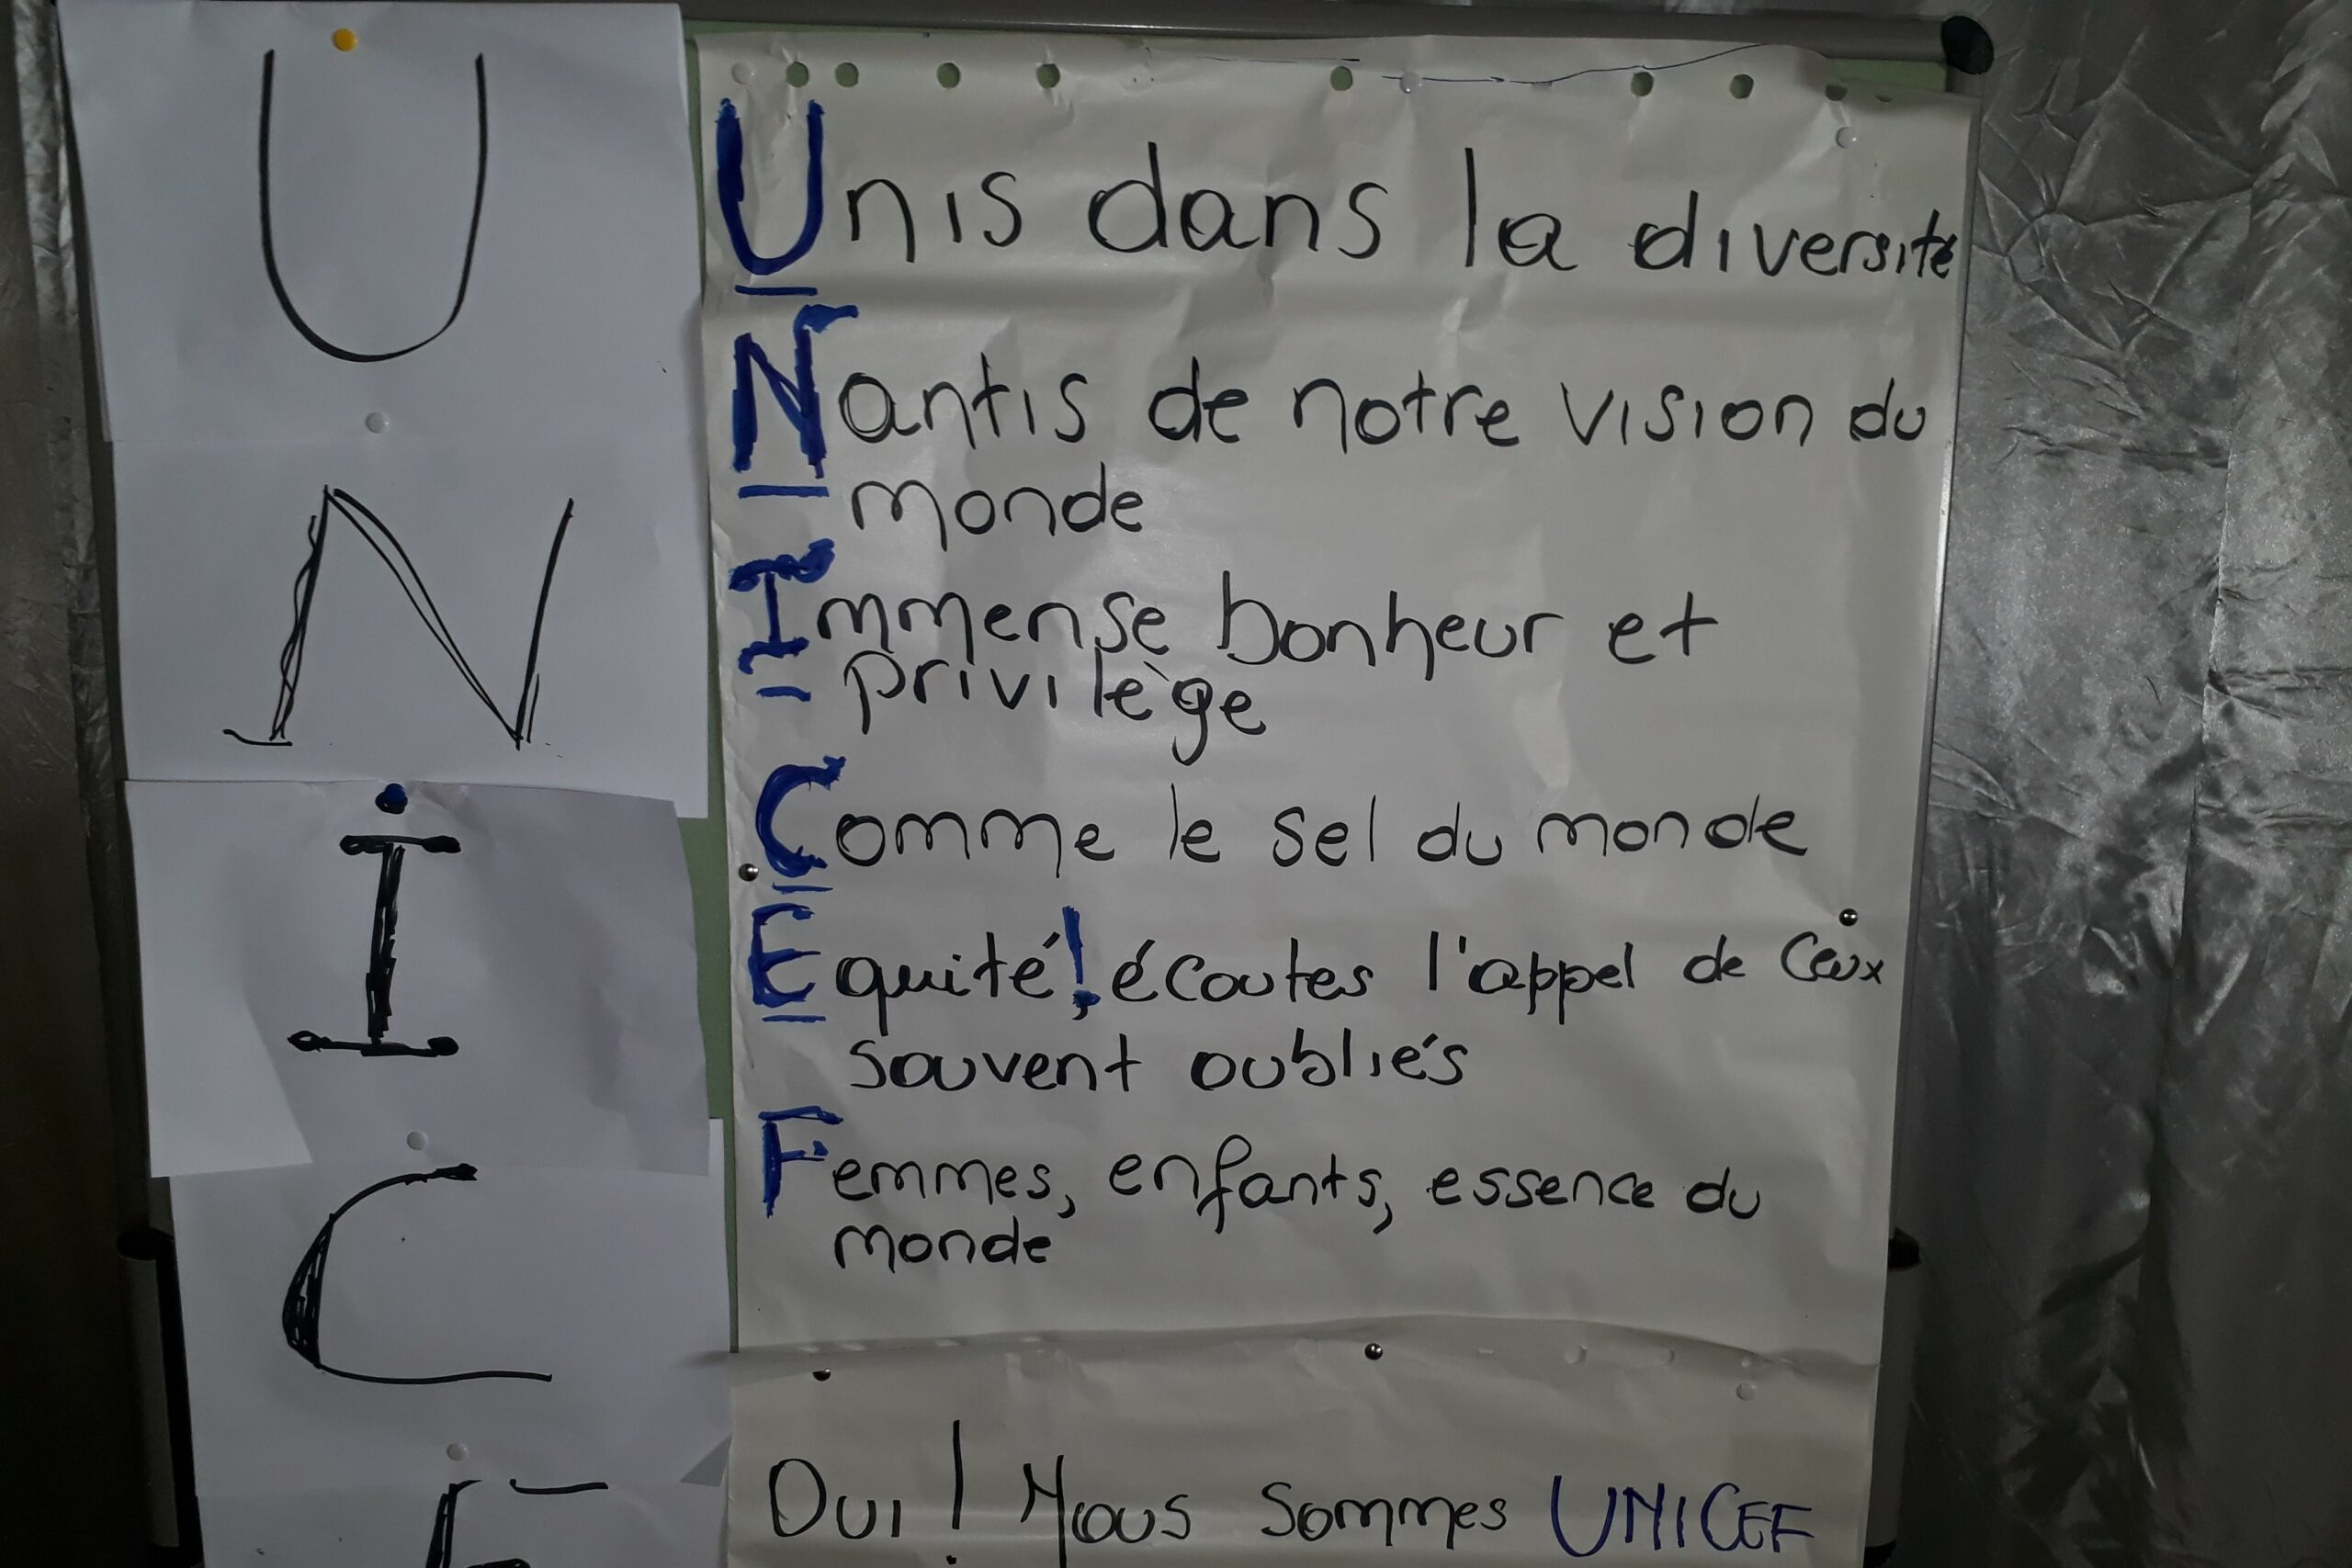 U
N
I
C
E
Unis dans la diversité
Nantis de notre vision du
monde
Immense bonheur et
privilège
Comme le sel du monde
Equité! écoutes l'appel de Ceux
souvent oubliés
Femmes, enfants, essence du
monde
Oui! Nous sommes UNICEF